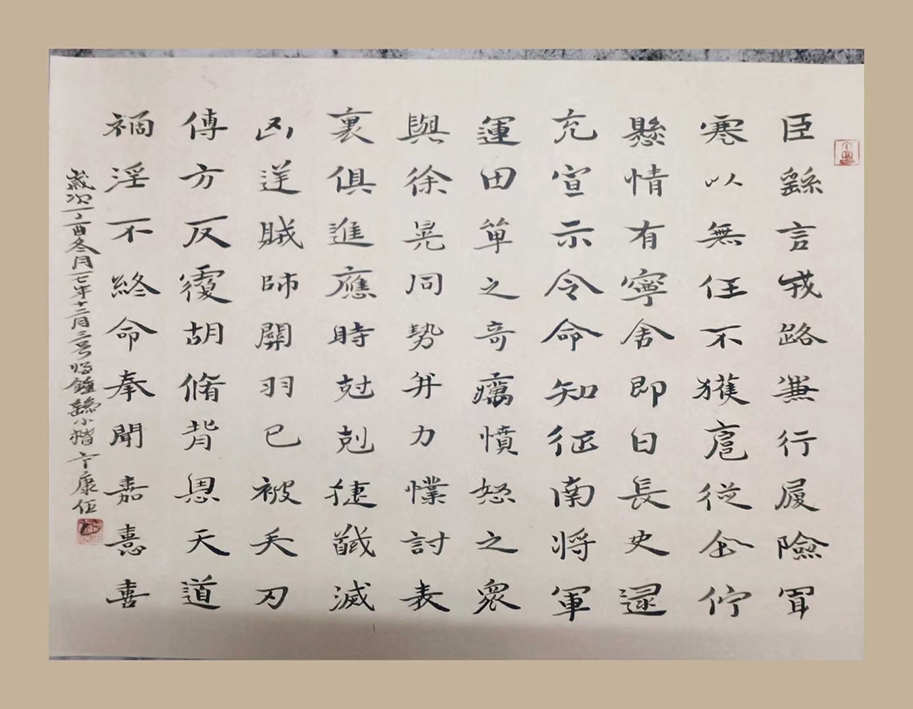 臣繇言戎路兼行履險冒
寒以無任不獲扈從企佇
懸情有寧舍即日長史逯
充宣示令命知征南將軍
運田單之奇癘憤怒之眾
與徐晃同勢并力慄討表
裏俱進應時尅剋捷馘滅
凶逆賊帥關羽已被矢刃
傅方反覆胡脩背恩天道
禍淫不終命奉聞嘉憙喜
歲次丁酉冬月一七年十二月三号鍾繇小楷卞康任